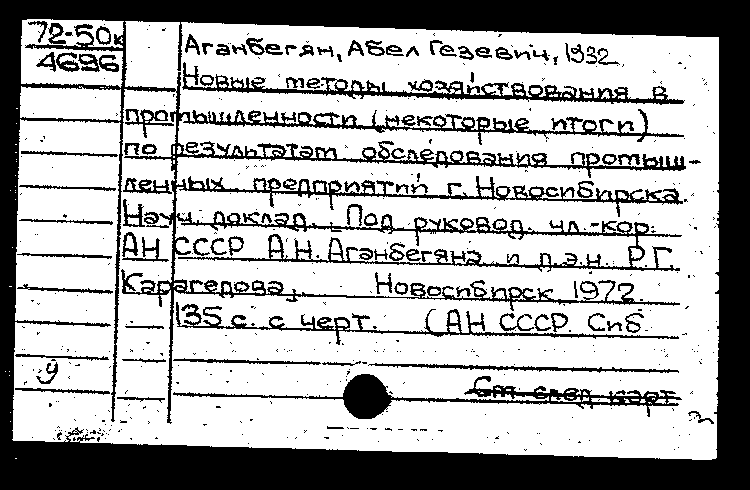 72-50к
4696
Аганбегян, Абел Гезевич, 1932
Новые методы хозяйствования в
промышленности (некоторые итоги)
по результатам обследования промыш-
ленных предприятий г. Новосибирска.
Науч. доклад. Под руковод. чл.-кор.
АН СССР А.Н. Аганбегяна и д.э.н. Р.Г.
Карагедова, Новосибирск 1972
135 с. с черт. (АН СССР. Сиб
9
См след карт